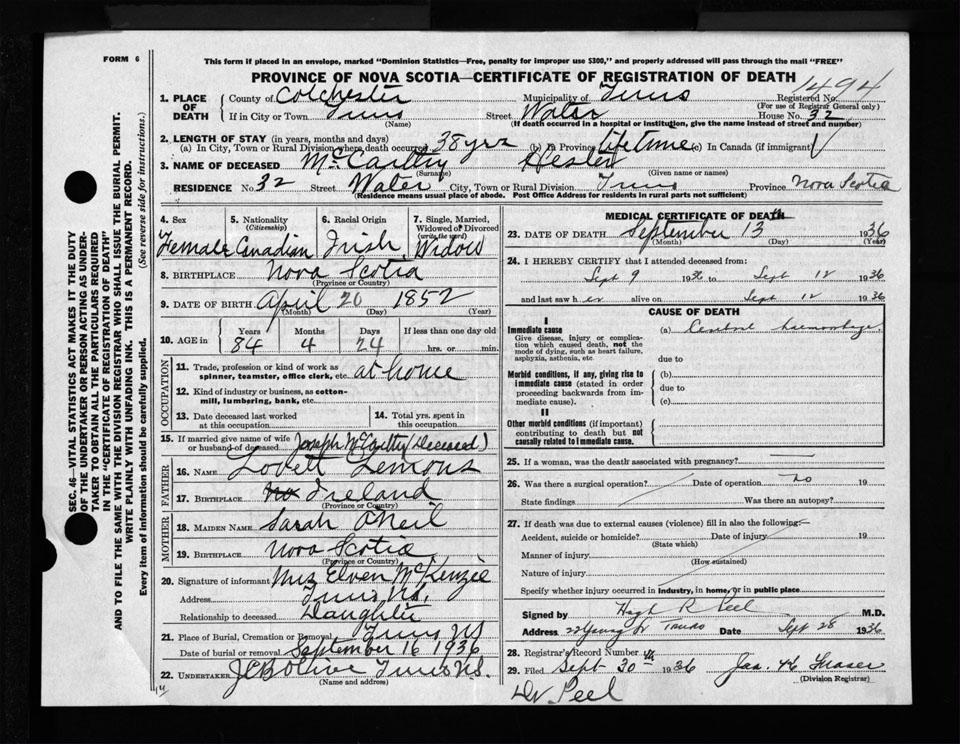 FORM 6
This form if placed in an envelope, marked "Dominion Statistics—Free, penalty for improper use $300," and properly addressed will pass through the mail "FREE"
PROVINCE OF NOVA SCOTIA—CERTIFICATE OF REGISTRATION OF DEATH
1494
1. PLACE OF DEATH
County of Colchester Municipality of Truro Registered No.
(For use of Registrar General only)
If in City or Town Truro Street Water House No. 32
(Name) (If death occurred in a hospital or institution, give the name instead of street and number)
2. LENGTH OF STAY (in years, months and days)
(a) In City, Town or Rural Division where death occurred 38 yrs (b) In Province Lifetime (c) In Canada (if immigrant)
3. NAME OF DECEASED McCarthy Hester
(Surname) (Given name or names)
RESIDENCE No. 32 Street Water City, Town or Rural Division Truro Province Nova Scotia
(Residence means usual place of abode. Post Office Address for residents in rural parts not sufficient)
SEC. 46—VITAL STATISTICS ACT MAKES IT THE DUTY
OF THE UNDERTAKER OR PERSON ACTING AS UNDER-
TAKER TO OBTAIN ALL THE PARTICULARS REQUIRED
IN THE "CERTIFICATE OF REGISTRATION OF DEATH"
AND TO FILE THE SAME WITH THE DIVISION REGISTRAR WHO SHALL ISSUE THE BURIAL PERMIT.
WRITE PLAINLY WITH UNFADING INK. THIS IS A PERMANENT RECORD.
Every item of information should be carefully supplied. (See reverse side for instructions.)
4. Sex 5. Nationality (Citizenship) 6. Racial Origin 7. Single, Married, Widowed or Divorced (write the word)
Female Canadian Irish Widow
8. BIRTHPLACE Nova Scotia
(Province or Country)
9. DATE OF BIRTH April 20 1852
(Month) (Day) (Year)
10. AGE in Years Months Days If less than one day old
84 4 24 hrs. or min.
OCCUPATION
11. Trade, profession or kind of work as spinner, teamster, office clerk, etc. at home
12. Kind of industry or business, as cotton-mill, lumbering, bank, etc.
13. Date deceased last worked at this occupation 14. Total yrs. spent in this occupation
15. If married give name of wife or husband of deceased Joseph McCarthy (Deceased)
FATHER
16. NAME Lovett Lemons
17. BIRTHPLACE Ireland
(Province or Country)
MOTHER
18. MAIDEN NAME Sarah O'Neil
19. BIRTHPLACE Nova Scotia
(Province or Country)
20. Signature of informant Mrs Elven McKenzie
Address Truro NS.
Relationship to deceased Daughter
21. Place of Burial, Cremation or Removal Truro NS
Date of burial or removal September 16 1936
22. UNDERTAKER J C B Olive Truro NS.
(Name and address)
MEDICAL CERTIFICATE OF DEATH
23. DATE OF DEATH September 13th 1936
(Month) (Day) (Year)
24. I HEREBY CERTIFY that I attended deceased from:
Sept 9 1936 to Sept 12 1936
and last saw her alive on Sept 12 1936
CAUSE OF DEATH
I
Immediate cause (a) Cerebral haemorrhage
Give disease, injury or complication which caused death, not the mode of dying, such as heart failure, asphyxia, asthenia, etc.
due to
Morbid conditions, if any, giving rise to immediate cause (stated in order proceeding backwards from immediate cause).
(b)
due to
(c)
II
Other morbid conditions (if important) contributing to death but not causally related to immediate cause.
25. If a woman, was the death associated with pregnancy? —
26. Was there a surgical operation? Date of operation no 19
State findings Was there an autopsy?
27. If death was due to external causes (violence) fill in also the following:—
Accident, suicide or homicide? Date of injury 19
(State which)
Manner of injury
(How sustained)
Nature of injury
Specify whether injury occurred in industry, in home, or in public place
Signed by Hugh R Peel M.D.
Address Truro Date Sept 28 1936
28. Registrar's Record Number
29. Filed Sept 30 1936 Fraser
(Division Registrar)
Dr Peel